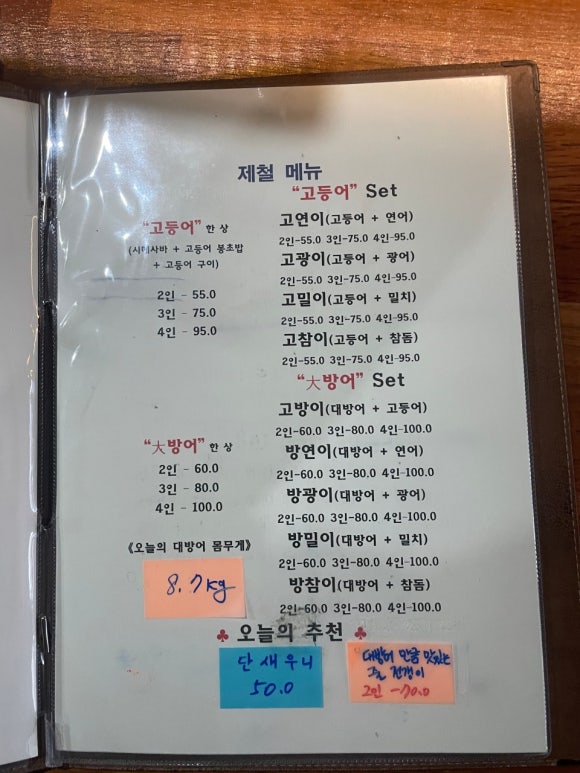 제철 메뉴
"고등어" 한 상
(시메사바 + 고등어 봉초밥
+ 고등어 구이)
2인 - 55.0
3인 - 75.0
4인 - 95.0
"고등어" Set
고연이(고등어 + 연어)
2인-55.0 3인-75.0 4인-95.0
고광이(고등어 + 광어)
2인-55.0 3인-75.0 4인-95.0
고밀이(고등어 + 밀치)
2인-55.0 3인-75.0 4인-95.0
고참이(고등어 + 참돔)
2인-55.0 3인-75.0 4인-95.0
"大방어" 한 상
2인 - 60.0
3인 - 80.0
4인 - 100.0
《오늘의 대방어 몸무게》
8.7kg
"大방어" Set
고방이(대방어 + 고등어)
2인-60.0 3인-80.0 4인-100.0
방연이(대방어 + 연어)
2인-60.0 3인-80.0 4인-100.0
방광이(대방어 + 광어)
2인-60.0 3인-80.0 4인-100.0
방밀이(대방어 + 밀치)
2인-60.0 3인-80.0 4인-100.0
방참이(대방어 + 참돔)
2인-60.0 3인-80.0 4인-100.0
♣ 오늘의 추천 ♣
단새우니
50.0
대방어 만큼 맛있는
줄 전갱이
2인 -70.0